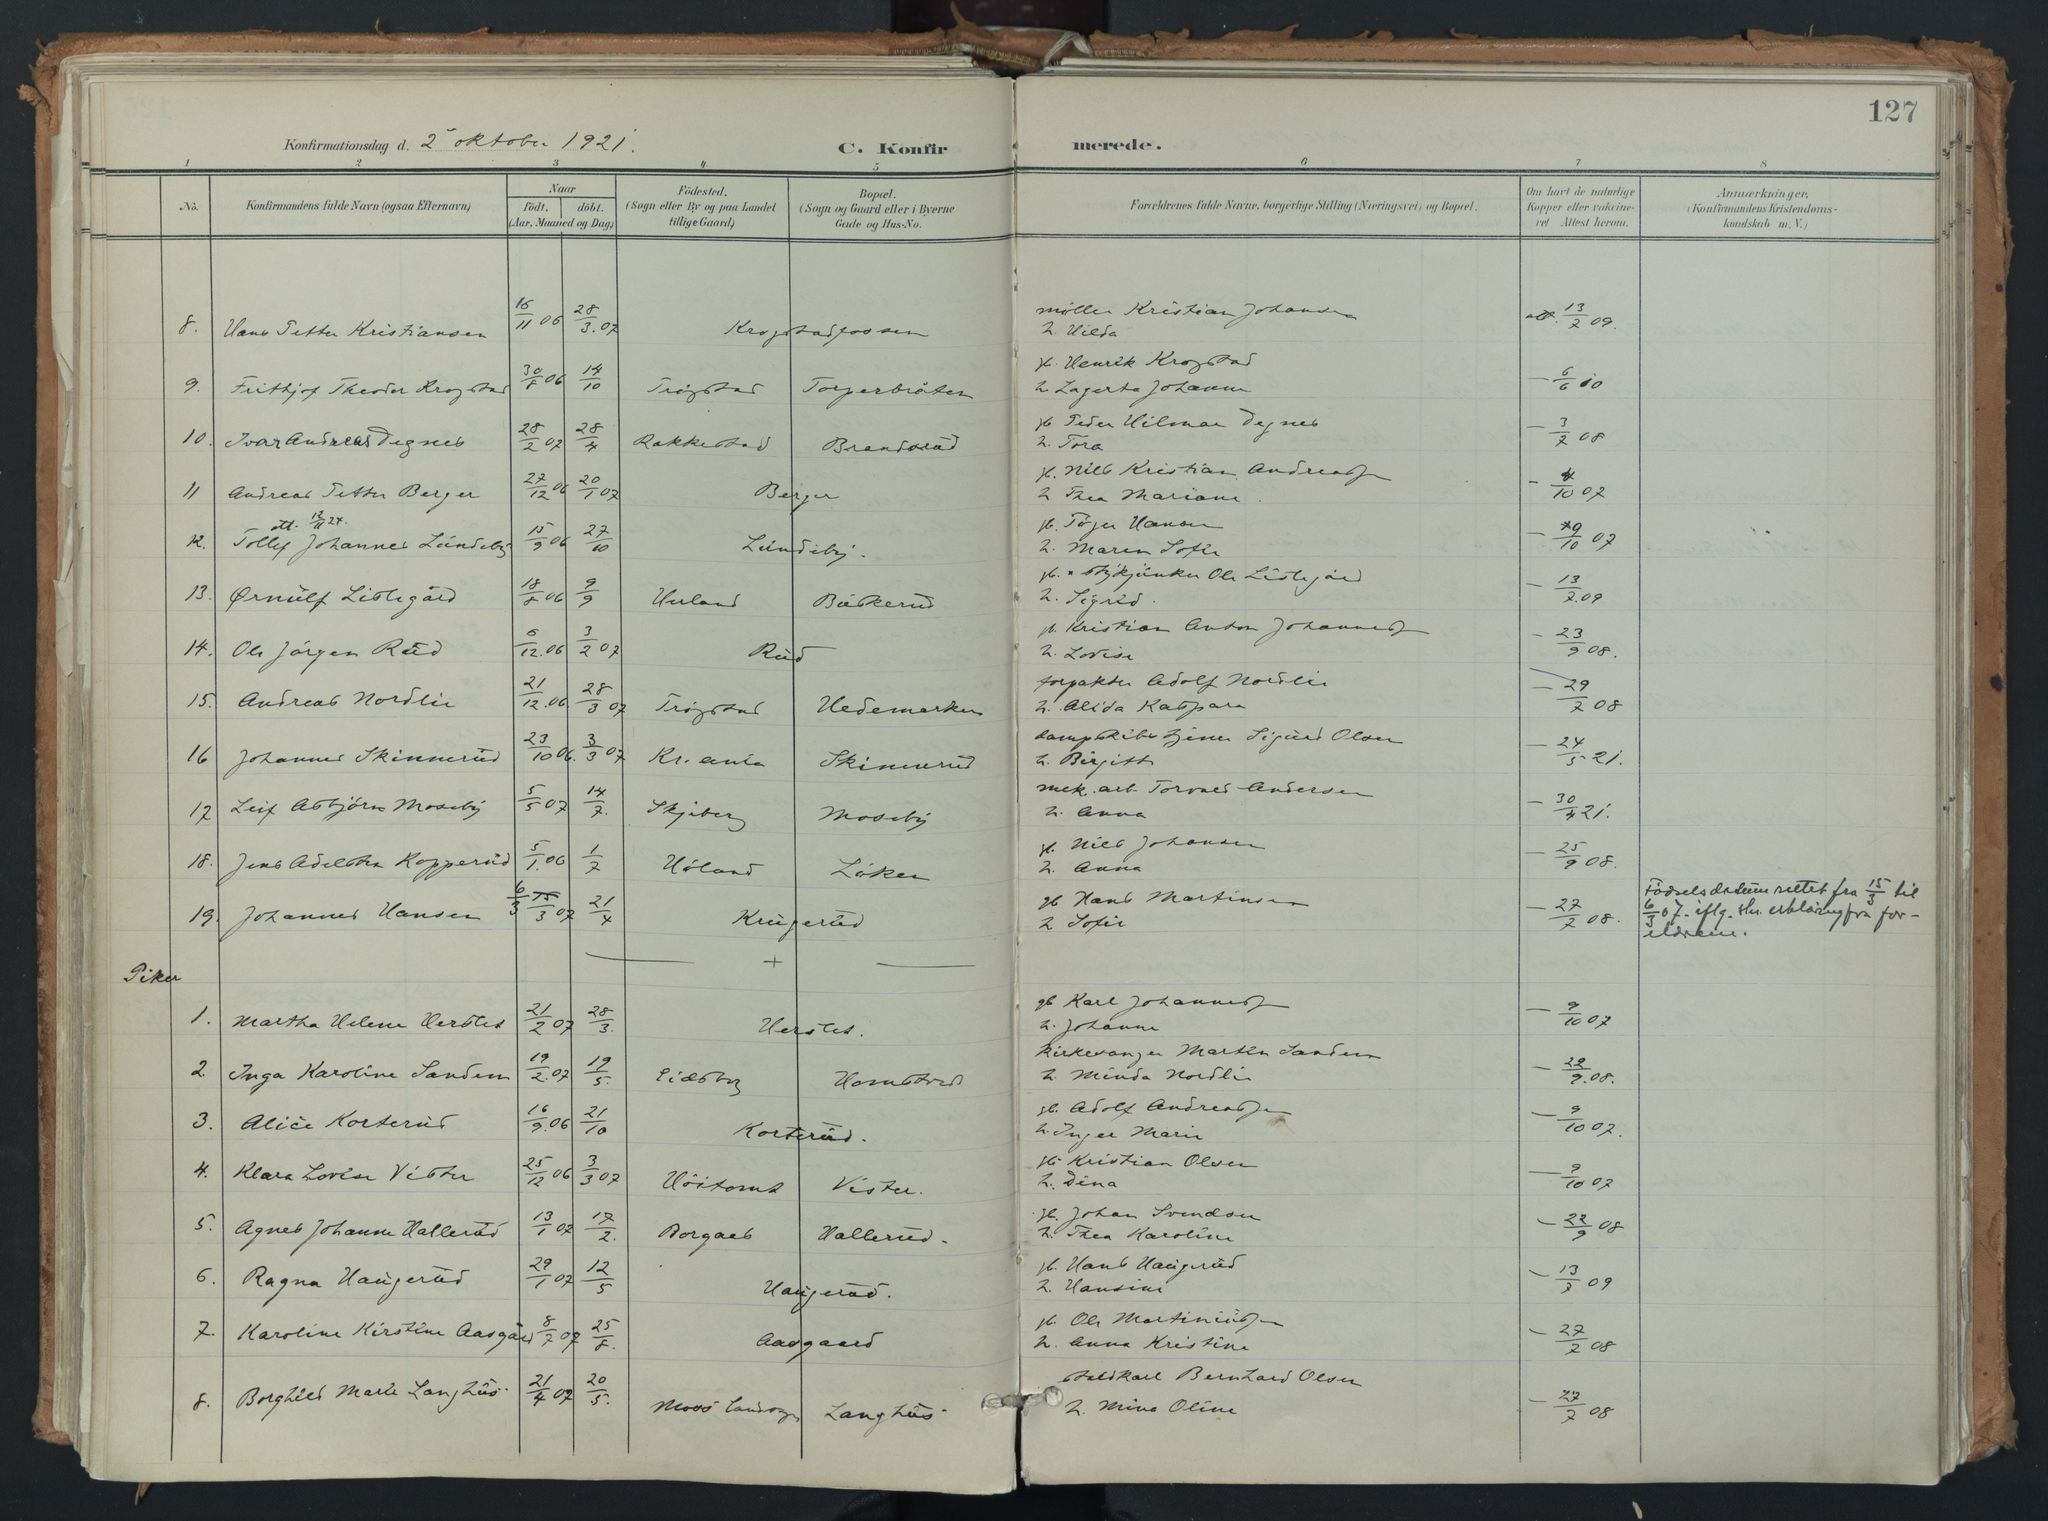 127
Konfirmationsdag d. 2 oktober 1921.
C. Konfirmerede.
1 2 3 4 5 6 7 8
No. Konfirmandens fulde Navn (ogsaa Efternavn) Naar Födt. döbt. (Aar, Maaned og Dag) Födested. (Sogn eller By og paa Landet tillige Gaard) Bopæl. (Sogn og Gaard eller i Byerne Gade og Hus-No. Forældrenes fulde Navne, borgerlige Stilling (Næringsvei) og Bopæl. Om havt de naturlige Kopper eller vakcineret Attest herom. Anmærkninger, (Konfirmandens Kristendomskundskab m. V.)
8. Hans Petter Kristiansen 16/11 06 28/3. 07 Krogstadfossen møller Kristian Johansen
h. Hilda 13/7 09.
9. Frithjof Theodor Krogstad 30/8 06 14/10 Trøgstad Torperbråten gb. Henrik Krogstad
h. Lagerta Johanne — 6/6 10
10. Ivar Andreas Degnes 28/2 07 28/4 Rakkestad Brandsrud gb Peder Hilmar Degnes
h. Tora — 3/7 08
11 Andreas Petter Berger 27/12 06 20/1 07 Berger gb. Nils Kristian Andreass
h Thea Mariane. — 4/10 07
att. 12/11 24.
12. Tollef Johannes Lundeby 15/9 06 27/10 Lundeby. gb. Tøger Hansen
h. Maren Sofie — 9/10 07
13. Ørnulf Listegård 18/8 06 9/9 Herland Buskerud Ole Listegård
h. Sigrid. — 13/7 09
14. Ole Jørgen Rud 6/12. 06 3/2 07 Rud gb. Kristian Anton Johanness
h. Lovise — 23/9 08.
15. Andreas Nordlie 21/12. 06. 28/3 07 Trøgstad Hedemarken forpakter Adolf Nordlie
h. Alida Kaspara — 29/7 08
16 Johannes Skinnerud 23/10 06. 3/3 07 Kr.ania Skinnerud Sigurd Olsen
h. Birgitte — 24/5 21.
17 Leif Asbjørn Moseby 5/5 07 14/7. Skjeberg Moseby mek. arb Torvald Andersen
h. Anna — 30/4 21.
18. Jens Adelsten Kopperud 5/1. 06 1/7 Høland Løken gb. Nils Johansen
h. Anna — 25/9 08.
19. Johannes Hansen 6/3 15/3 07 21/4 Krugerud gb Hans Martinsen
h Sofie — 27/7 08. Födselsdatum rettet fra 15/3 til
6/3 07. iflg. skr. erklæring fra for-
eldrene.
Piker
1. Martha Helene Hersleth 21/2 07 28/3. Hersleth. gb Karl Johanness
h. Johanne — 9/10 07
2. Inga Karoline Sandem 19/2. 07 19/5. Eidsberg Homstvedt kirkesanger Martin Sandem
h. Minda Nordlie — 22/9. 08.
3. Alice Korterud 16/9. 06 21/10 Korterud. gb. Adolf Andreass
h. Inger Marie — 9/10 07.
4. Klara Lovise Vister 25/12 06 3/3 07 Höitomt Vister. gb. Kristian Olsen
h. Dina — 9/10 07
5. Agnes Johanne Hallerud 13/1 07 17/2. Borgaas Hallerud. gb. Johan Svendsen
h. Thea Karoline — 22/9 08
6. Ragna Haugerud 29/1 07 12/5 Haugerud. gb. Hans Haugerud
h. Hansine — 13/7 09
7. Karoline Kirstine Aasgård 8/7 07 25/8. Aasgaard gb. Ole Martiniuss
h. Anna Kristine — 27/7 08
8. Borghild Marie Langhus. 21/4 07 20/5. Moss landsogn Langhus. staldkarl Bernhard Olsen
h. Mina Oline — 27/7 08